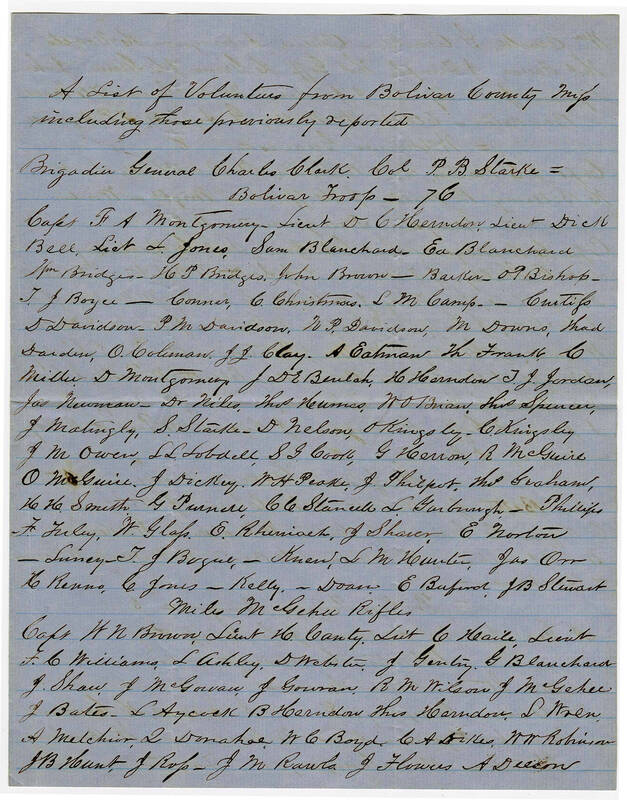 A List of Volunteers from Bolivar County Miss
including those previously reported
Brigadier General Charles Clark. Col P B Starke =
Bolivar Troop — 76
Capt F A Montgomery — Lieut D C Herndon, Lieut Dick
Bell, Liet L. Jones, Sam Blanchard. Ed Blanchard
Wm Bridges — H P Bridges, John Brown — Barker — O P Bishop —
T J Boyce — Conner, C Christmas. L M Camp. — Curtiss
D Davidson — P M Davidson, N P. Davidson, M Downs, Thad
Darden, O. Coleman, J J. Clay. A Eatman Th Frank C
Miller D Montgomery J D E Beulah, H Herndon T. J. Jordan,
Jas Newman — Dr Niles, Thos W O Brian, Thos Spencer,
J Matingly, S Starke — D Nelson, O Kingsly — C Kingsley
J M Owen, L L Lobdell, S G Cook, G Herron, R McGuire
O McGuire. J Dickey. W H Peake, J Philpot, Thos Graham,
H H Smith, G Purnell, C C Stancell L Yarbrough — Phillips
F Furley, W. Glass. E. Rheinach, J Sharer E Norton
— T. J Bogue, — L M Hunter, Jas Orr
H Renno, C Jones — Kelly. — Doan E Buford, J B Stewart
Miles McGehee Rifles
Capt W N Brown, Lieut H Canty, Liet C Haile, Lieut
F. C Williams, L Ashley, D Webster, J Gentry, G Blanchard
J. Shaw, J McGowan J Gowran, R M Wilson J McGehee
J Bates — L Aycock B Herndon Thos Herndon, L Wren,
A Melchior, Q Donahoe, W C Boyd. C A Dikes, W W Robinson
J B Hunt, J Ross — J M Rawls J Flowers A Deeson